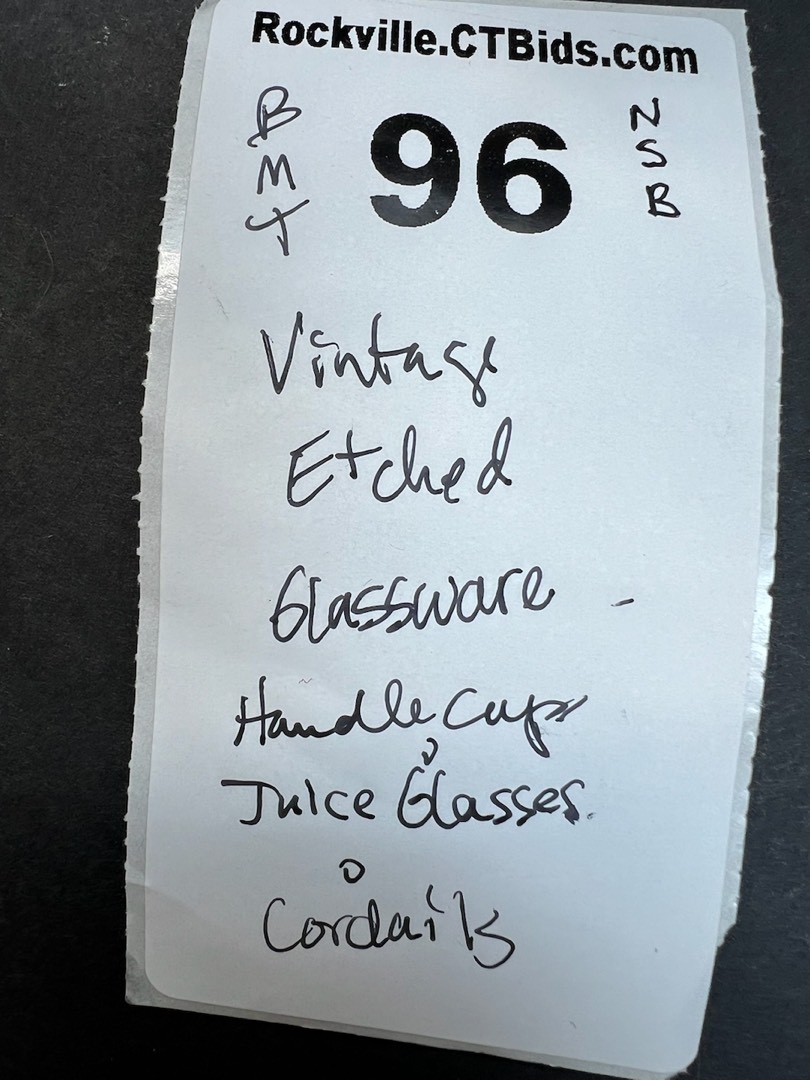 Rockville.CTBids.com
B
M
T
96
N
S
B
Vintage
Etched
Glassware -
Handle Cups
Juice Glasses.
Cordails